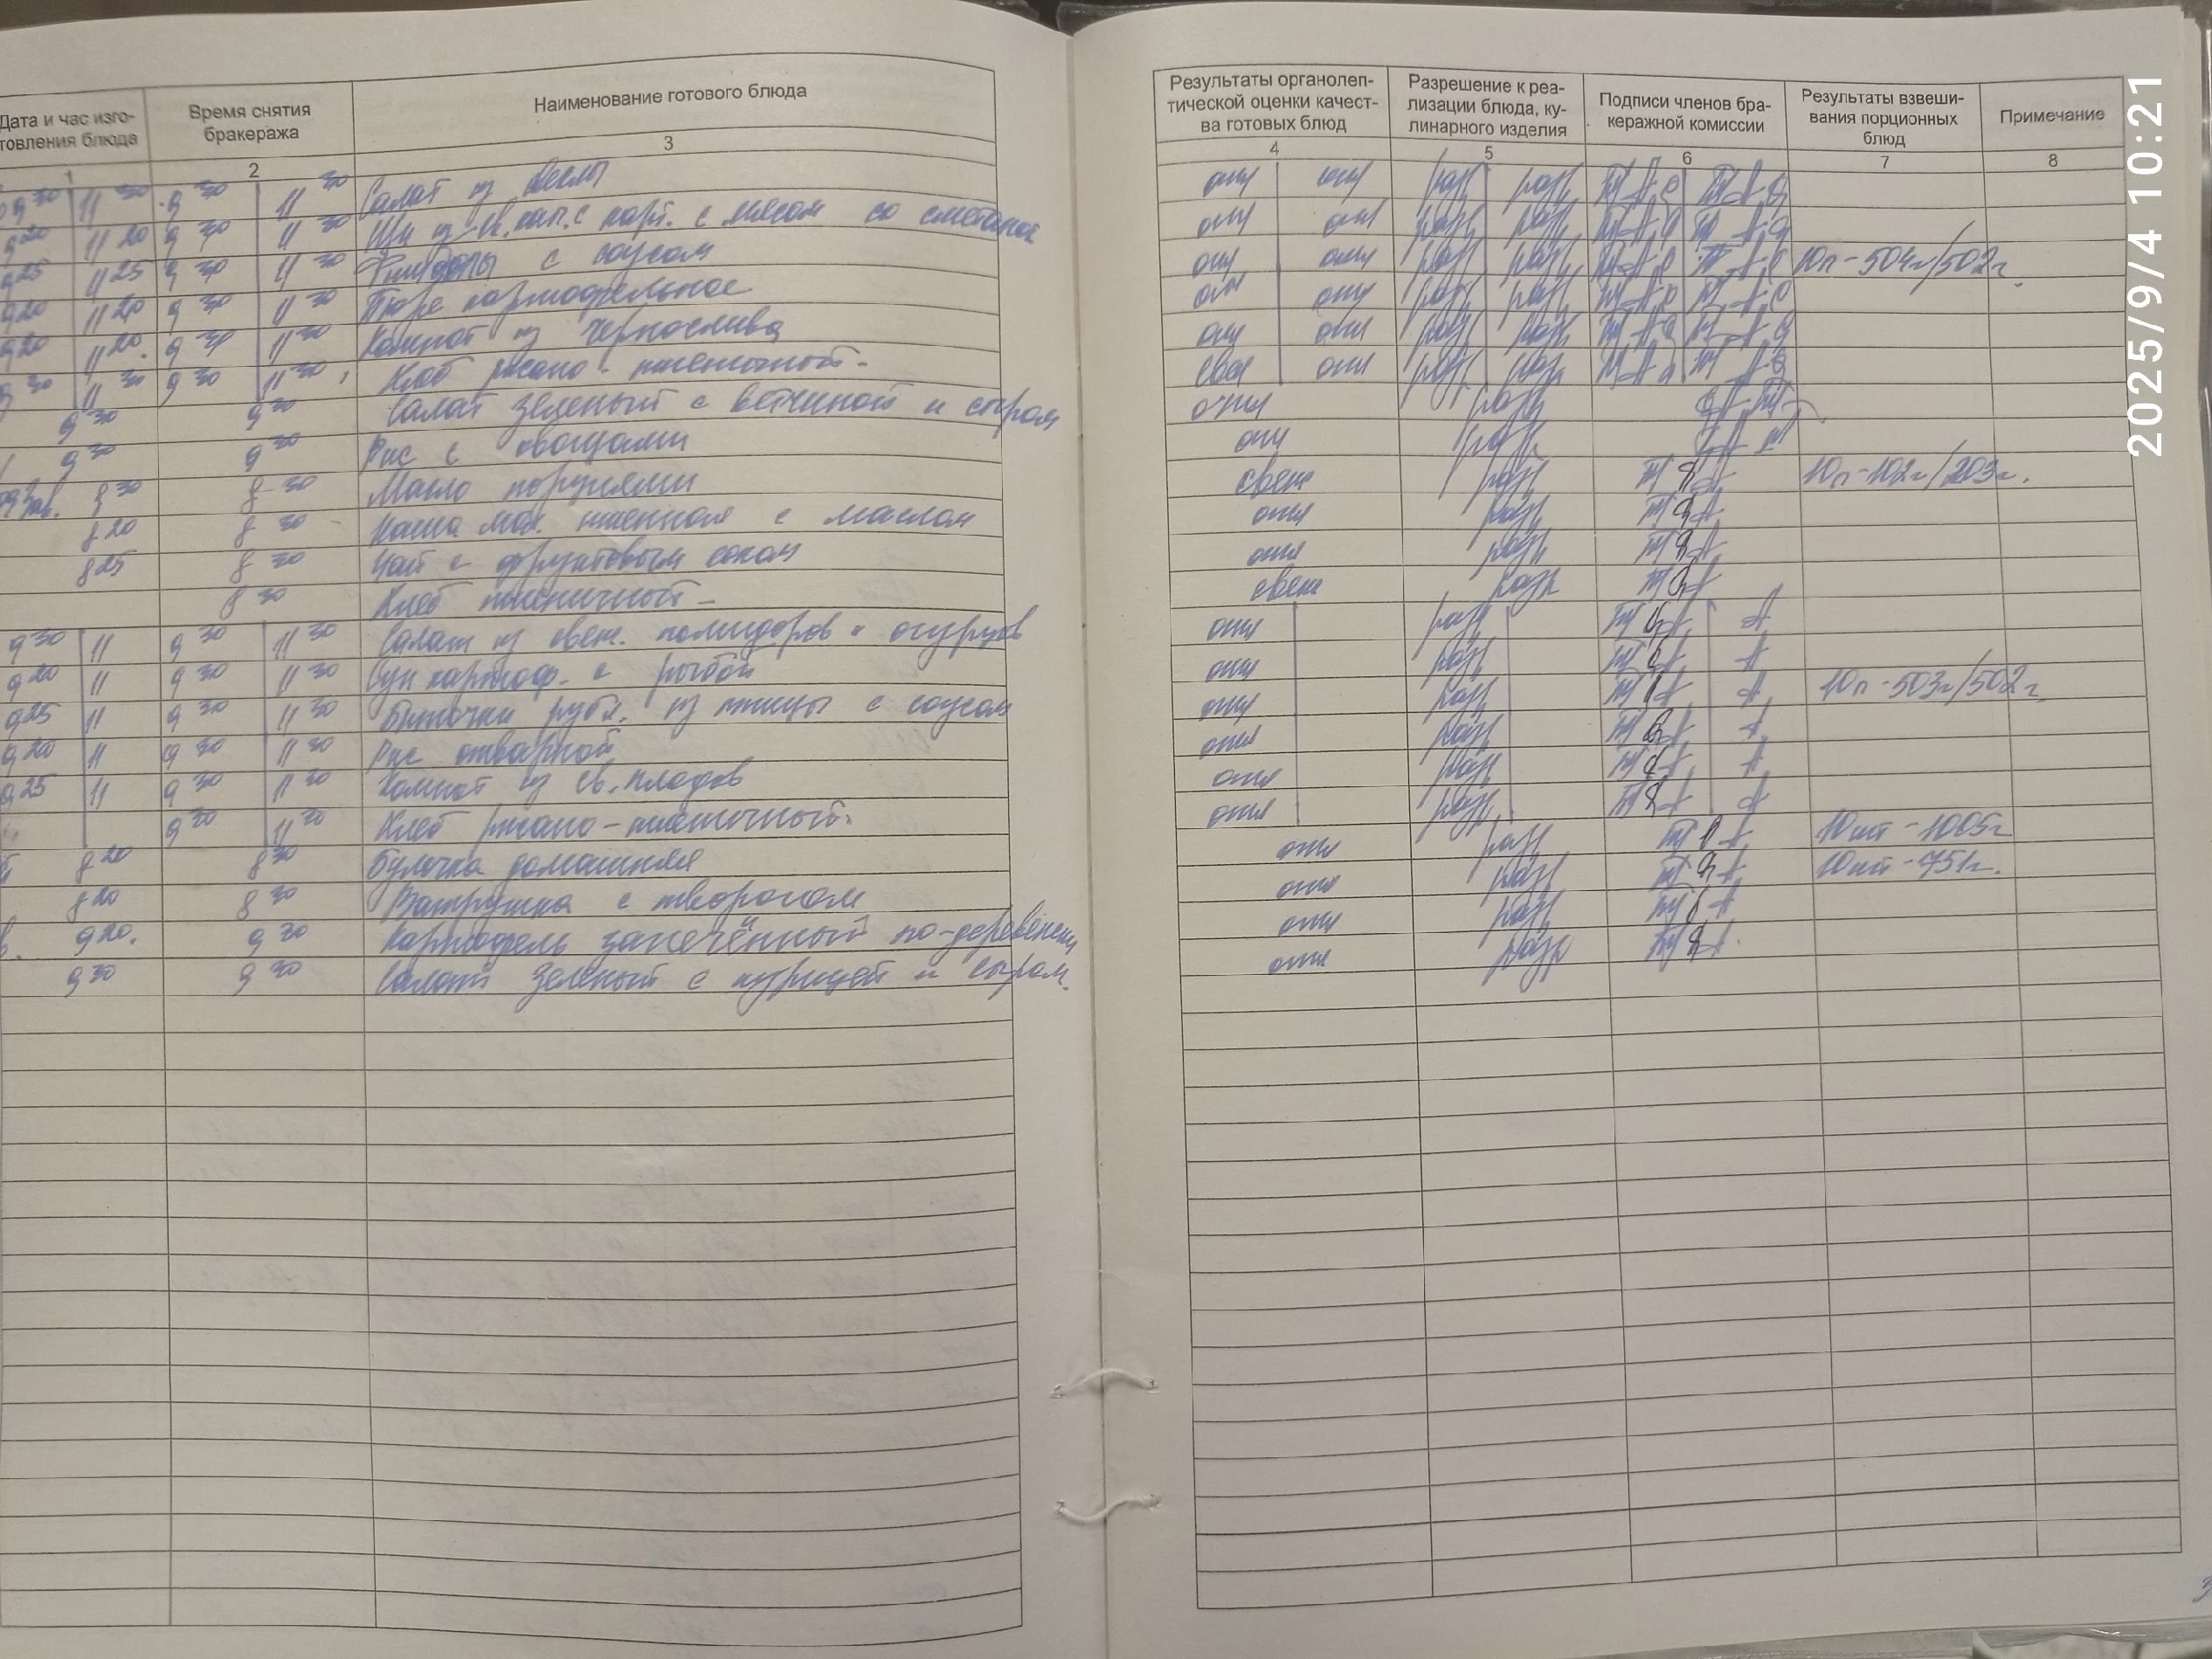 Дата и час изго-
товления блюда
Время снятия
бракеража
Наименование готового блюда
1
2
3
9 30 11 30 9 30 11 30 Салат из свеклы
9 20 11 20 9 30 11 30 Щи из св. кап. с карт. с мясом со сметаной
9 25 11 25 9 30 11 30 с соусом
9 20 11 20 9 30 11 30 Пюре картофельное
9 20 11 20 9 30 11 30 Компот из чернослива
9 30 11 30 9 30 11 30 Хлеб ржано-пшеничный
9 30 9 30 Салат зеленый с ветчиной и сыром
9 30 9 30 Рис с овощами
8 30 8 30 Масло порциями
8 20 8 30 Каша мол. пшенная с маслом
8 25 8 30 Чай с фруктовым соком
8 30 Хлеб пшеничный
9 30 11 9 30 11 30 Салат из свеж. помидоров и огурцов
9 20 11 9 30 11 30 Суп картоф. с рыбой
9 25 11 9 30 11 30 Биточки рубл. из птицы с соусом
9 20 11 9 30 11 30 Рис отварной
9 25 11 9 30 11 30 Компот из св. плодов
9 30 11 30 Хлеб ржано-пшеничный
8 20 8 30 Булочка домашняя
8 20 8 30 Ватрушка с творогом
9 20. 9 30 Картофель запечённый по-деревенски
9 30 9 30 Салат зеленый с курицей и сыром.
Результаты органолеп-
тической оценки качест-
ва готовых блюд
Разрешение к реа-
лизации блюда, ку-
линарного изделия
Подписи членов бра-
керажной комиссии
Результаты взвеши-
вания порционных
блюд
Примечание
4
5
6
7
8
отл отл разр разр
отл отл разр разр
отл отл разр разр 10п-504г/502г.
отл отл разр разр
отл отл разр разр
свеж отл разр разр
отл разр
отл разр
свеж разр 10п-102г/203г.
отл разр
отл разр
свеж разр
отл разр
отл разр
отл разр 10п-503г/502г
отл разр
отл разр
отл разр
отл разр 10шт-1005г
отл разр 10шт-751г.
отл разр
отл разр
2025/9/4 10:21